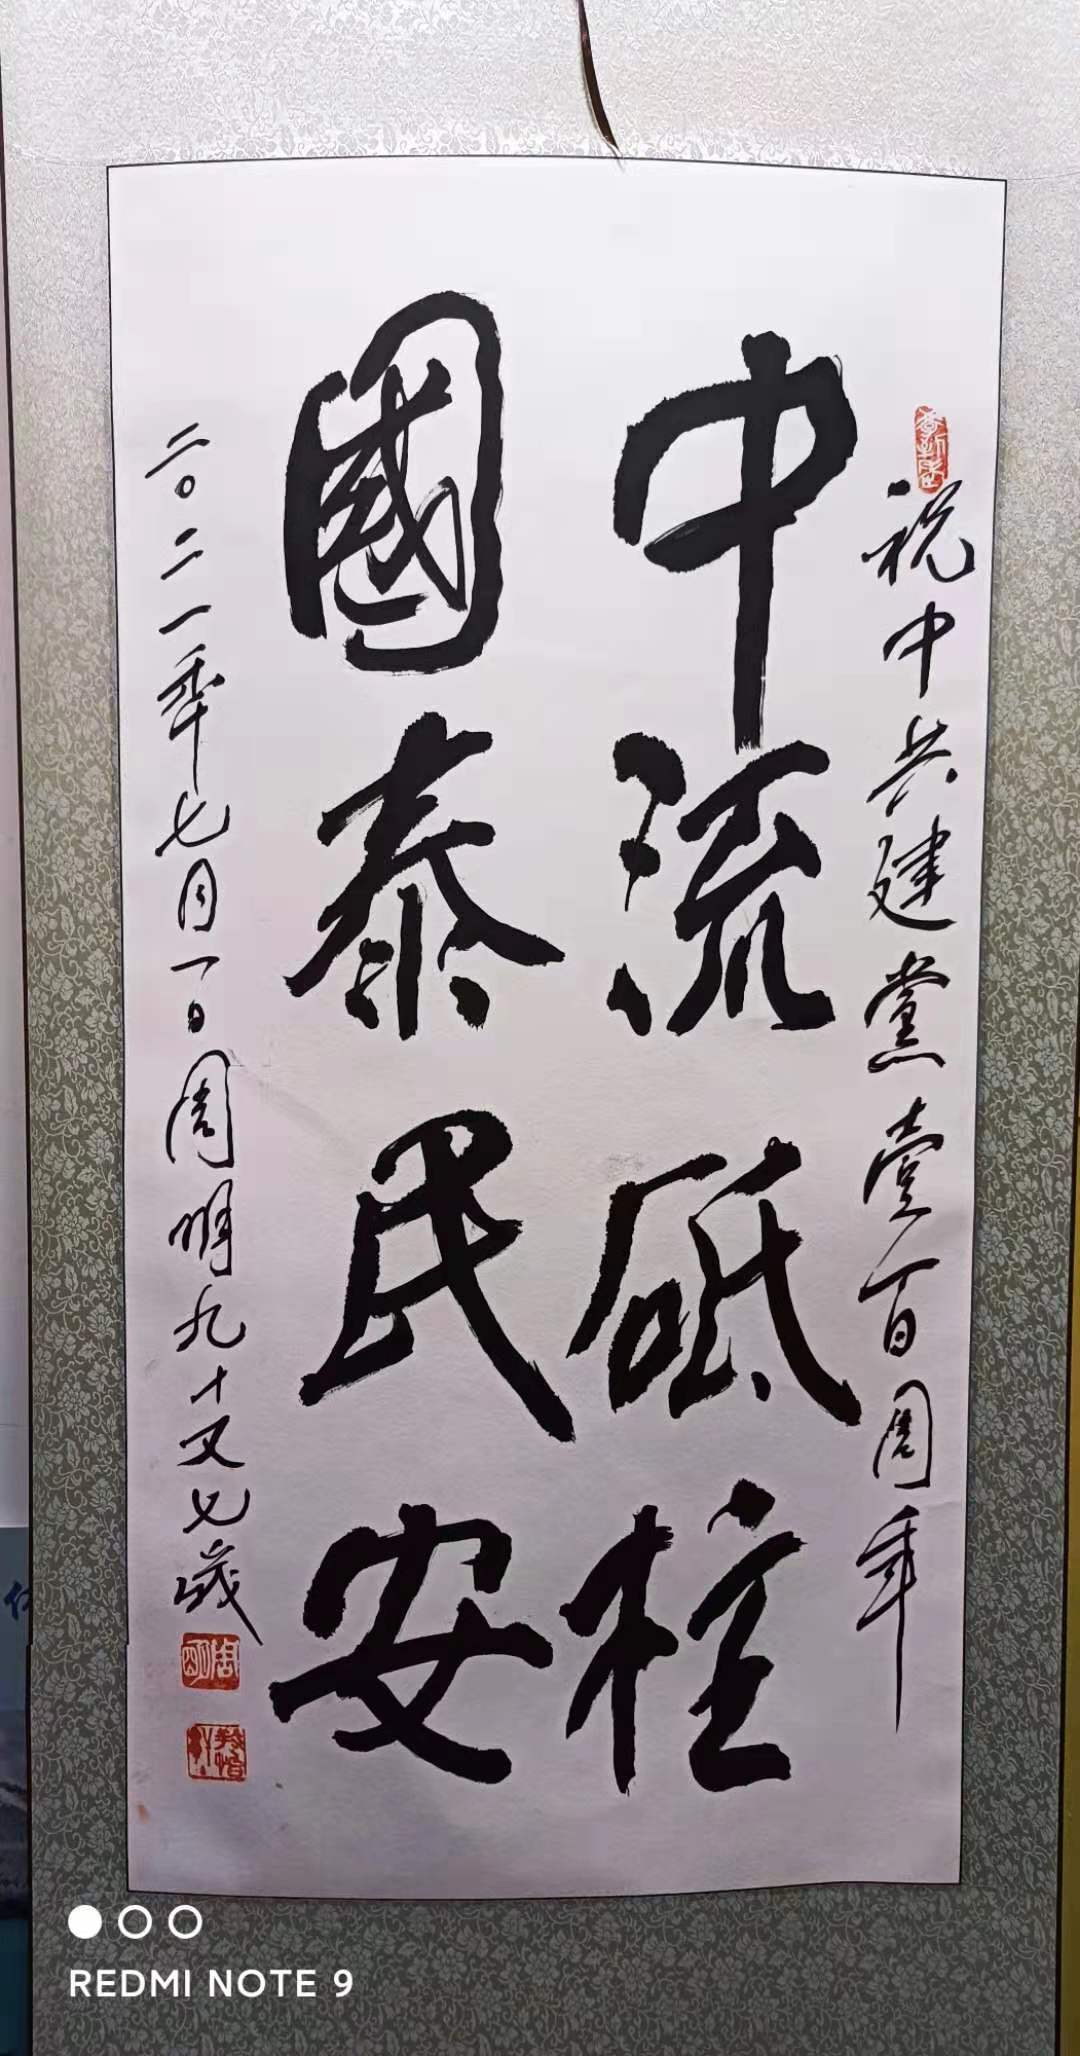 祝中共建黨壹百周年
中流砥柱
國泰民安
二〇二一年七月一日周明九十又七歲
周明
REDMI NOTE 9